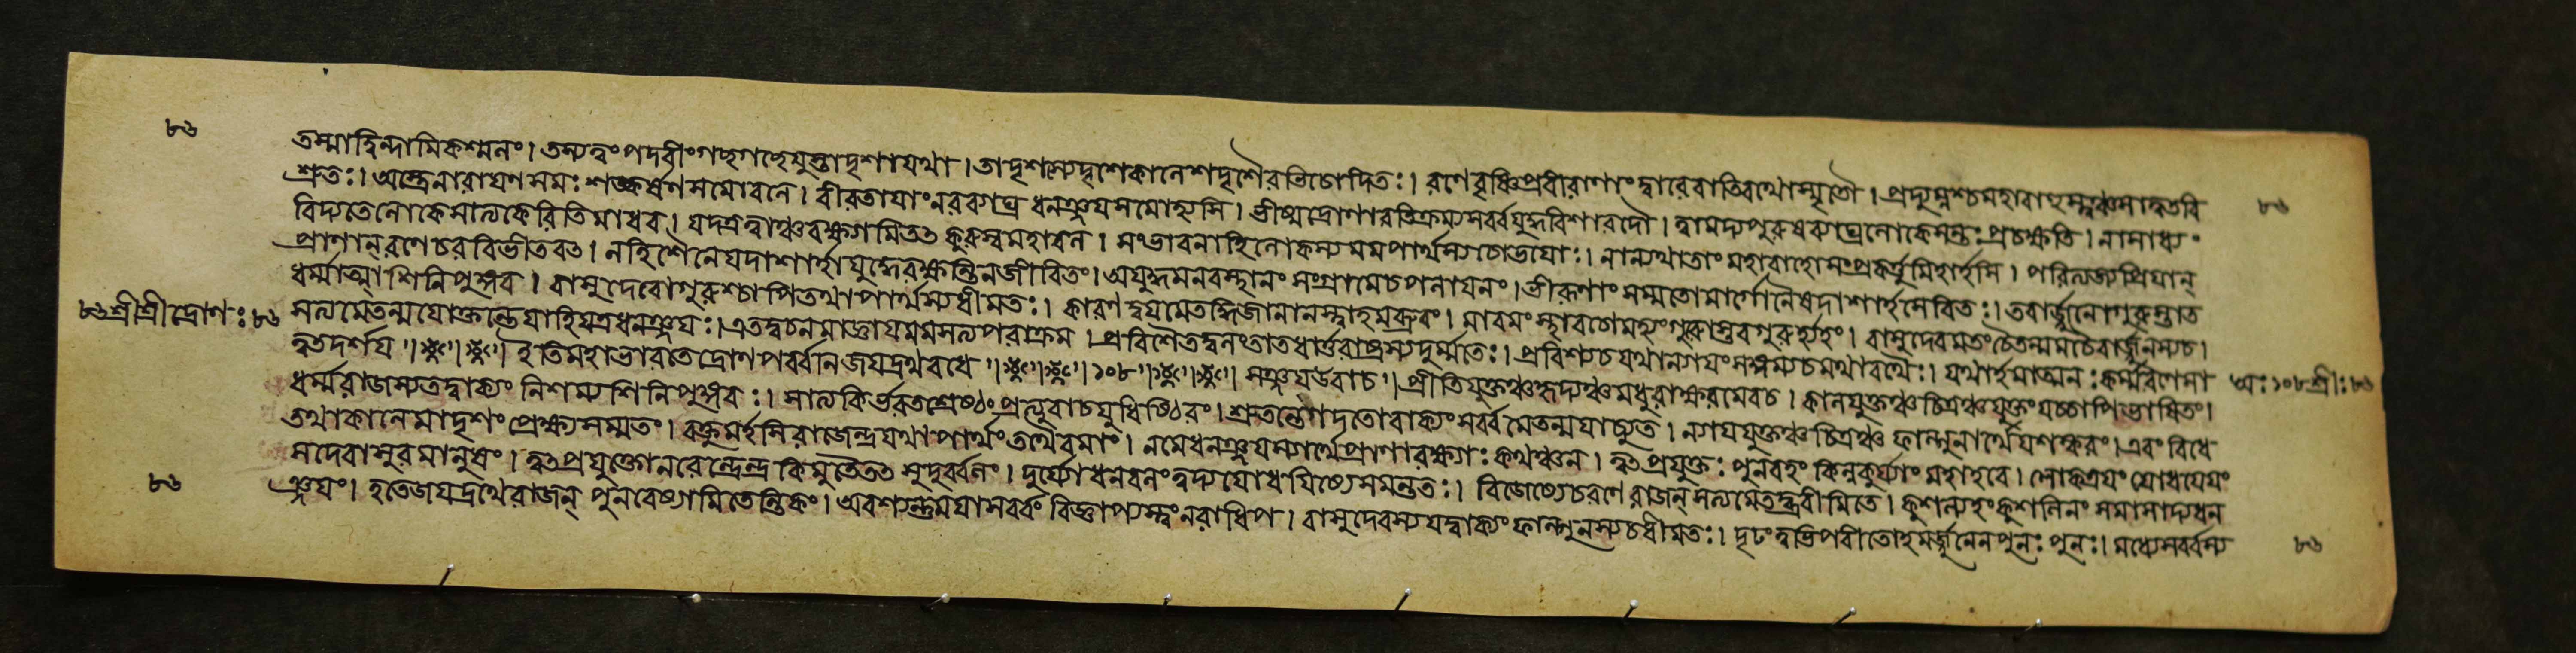 ৮৬
তস্মাদ্বিন্দামিকশ্মলং। তস্যত্বংপদবীংগচ্ছগচ্ছেযুস্ত্বাদৃশাযথা। তাদৃশস্যদৃশেকালেশদৃশৈরভিচোদিতঃ। রণেবৃষ্ণিপ্রবীরাণাংদ্বাবেবাতিরথৌস্মৃতৌ। প্রদ্যুম্নশ্চমহাবাহুস্ত্বঞ্চসাত্বতবি
শ্রুতঃ। অস্ত্রেনারাযণসমঃশঙ্কর্ষণসমোবলে। বীরতাযাংনরব্যাঘ্র ধনঞ্জযসমোহ্যসি। ভীষ্মদ্রোণাবতিক্রম্যসর্ব্বযুদ্ধবিশারদৌ। ত্বামদ্যপুরুষব্যাঘ্রংলোকেসন্তঃপ্রচক্ষতি। নাসাধ্যং
৮৬
বিদ্যতেলোকেসাত্যকেরিতিমাধব। যদত্রত্বাঞ্চবক্ষ্যামিতৎ কুরুস্বমহাবল। সংভাবনাহিলোকস্যমমপার্থস্যচোভযোঃ। নান্যথাতাংমহাবাহোসংপ্রকর্ত্তুমিহার্হসি। পরিত্যজ্যপ্রিযান্
প্রাণান্ রণেচরবিভীতবৎ। নহিশৈনেযদাশার্হাযুদ্ধেরক্ষন্তিজীবিতং। অযুদ্ধমনবস্থানং সংগ্রামেচপলাযনং। ভীরূণাং সম্মতোমার্গোনৈষদাশার্হসেবিতঃ। তবার্জ্জুনোগুরুস্তাত
ধর্ম্মাত্মাশিনিপুঙ্গব। বাসুদেবোগুরুশ্চাপিতথাপার্থস্যধীমতঃ। কারণদ্বযমেতদ্ধিজানানস্ত্বাহমব্রুবং। মাবমংস্থাবচোমহ্যংগুরুস্তবগুরুর্হ্যহং। বাসুদেবমতংচৈতন্মমচৈবার্জ্জুনস্যচ।
৮৬শ্রীশ্রীদ্রোণঃ৮৬ সত্যমেতন্মযোক্তন্তেযাহিযত্রধনঞ্জযঃ। এতদ্বচনমাজ্ঞাযমমসত্যপরাক্রম। প্রবিশৈতদ্বলংতাতধার্ত্তরাষ্ট্রস্যদুর্ম্মতেঃ। প্রবিশ্যচযথান্যাযংসঙ্গম্যচমথারথৈঃ। যথার্হমাত্মনঃকর্ম্মরণেসা
ত্বতদর্শয॥ ইতিমহাভারতেদ্রোণপর্ব্বনিজযদ্রথবধে॥ ১০৮॥ সঞ্জযউবাচ॥ প্রীতিযুক্তঞ্চহৃদ্যঞ্চমধুরাক্ষরমেবচ। কালযুক্তঞ্চচিত্রঞ্চযুক্তংযচ্চাপিভাষিতং। অঃ১০৮শ্রীঃ৮৬
ধর্ম্মরাজস্যতদ্বাক্যং নিশম্যশিনিপুঙ্গবঃ। সাত্যকির্ভরতশ্রেষ্ঠংপ্রত্যুবাচযুধিষ্ঠিরং। শ্রুতন্তেগদতোবাক্যংসর্ব্বমেতন্মযাচ্যুত। ন্যাযযুক্তঞ্চচিত্রঞ্চ ফাল্গুনার্থেযশস্করং। এবংবিধে
তথাকালেমাদৃশংপ্রেক্ষ্যসম্মতং। বক্তুমর্হসিরাজেন্দ্রযথাপার্থংতথৈবমাং। নমেধনঞ্জযস্যার্থেপ্রাণারক্ষ্যাঃকথঞ্চন। ত্বৎপ্রযুক্তঃপুনরহংকিন্নকুর্য্যাংমহাহবে। লোকত্রযংযোধযেযং
সদেবাসুরমানুষং। ত্বৎপ্রযুক্তোনরেন্দ্রেন্দ্রকিমুতৈতৎ সুদুর্ব্বলং। দুর্য্যোধনবলংত্বদ্যযোধযিষ্যেসমন্ততঃ। বিজেষ্যেচরণেরাজন্ সত্যমেতদ্ব্রবীমিতে। কুশল্যহংকুশলিনংসমাসাদ্যধন
৮৬ ঞ্জযং। হতেজযদ্রথেরাজন্ পুনরেষ্যামিতেন্তিকং। অবশ্যন্তুমযাসর্ব্বংবিজ্ঞাপ্যস্ত্বংনরাধিপ। বাসুদেবস্যযদ্বাক্যংফাল্গুনস্যচধীমতঃ। দৃঢংত্বভিপরীতোহমর্জ্জুনেনপুনঃপুনঃ। মধ্যেসর্ব্বস্য ৮৬